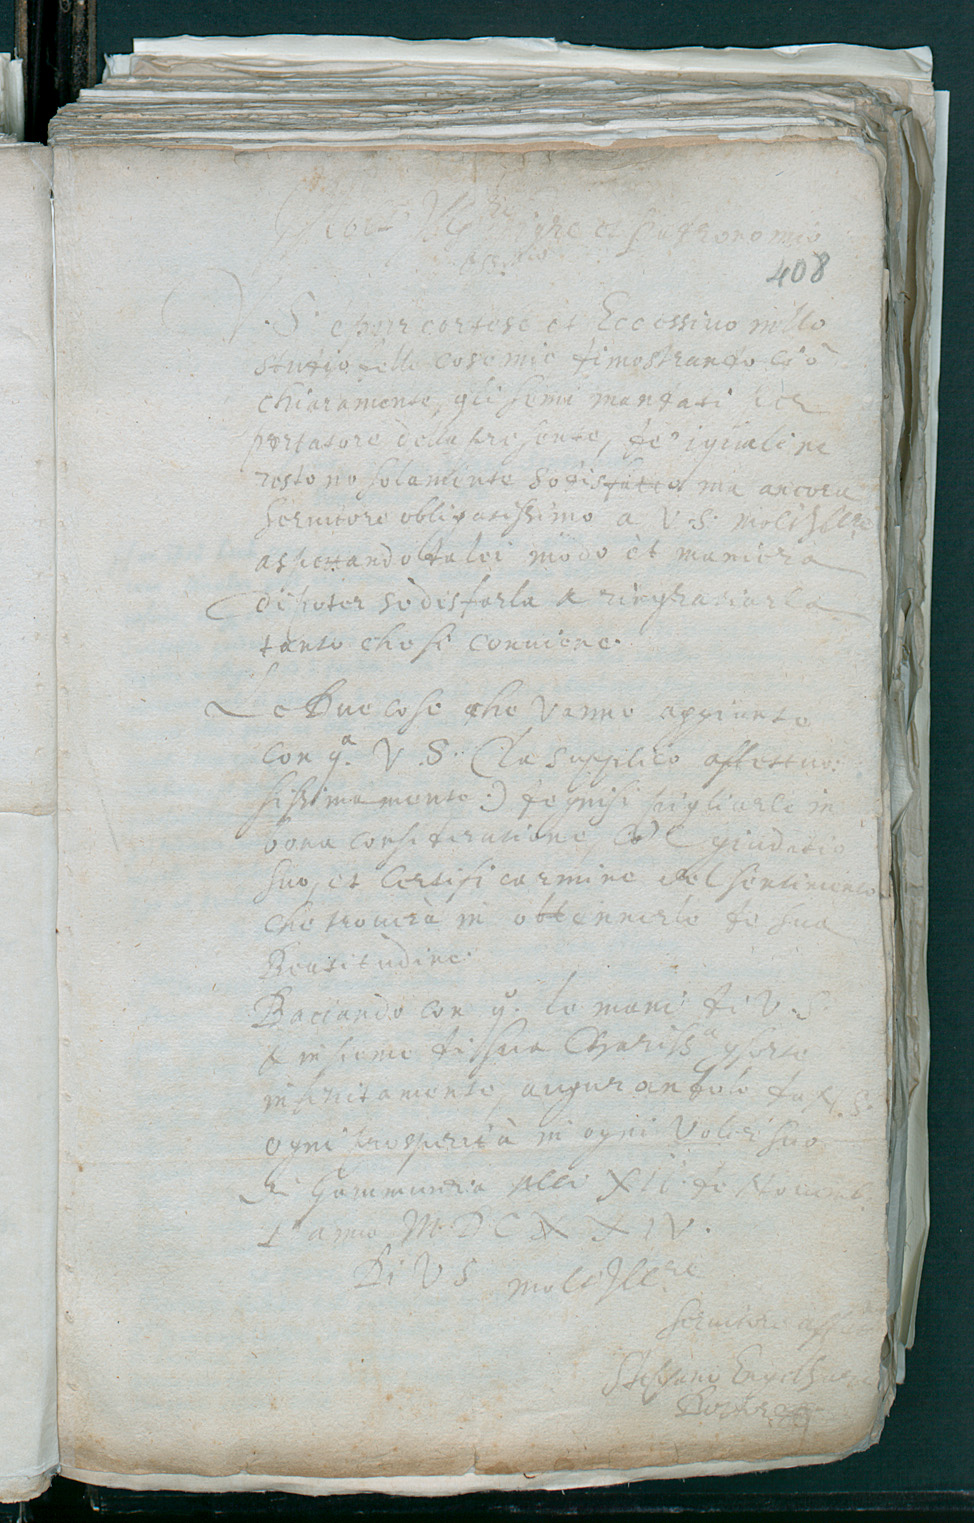 et Patrono mio
oss.mo
408
V. S. cortese et Eccessiuo nello
studio delle cose mie dimostrando ciò
chiaramente, gli mandati
portatore della presente, de i quali ne
resto no solamente sodisfatto ma ancora
seruitore obligatissimo a V. S. molt Ill.re
aspettando da lei modo et maniera
di poter sodisfarla & ringratiarla
tanto che si conuiene.
Le Due cose che Vanno aggiunte
con q.a V. S. (la supplico affettuo:
sissimamente:) degnisi pigliarle in
bona consideratione, giuditio
suo, et certificarmine del sentimento
che trouerà in ottennerle da sua
Beatitudine.
Baciando con q. le mani di V. S.
& insieme di sua Chariss.a
infinitamente, augurandole da
ogni prosperità in ogni Voler suo
Di alli XII de Nouemb.
l anno M D C X X I V.
Di V S molt Ill.re
seruitore
Steffano